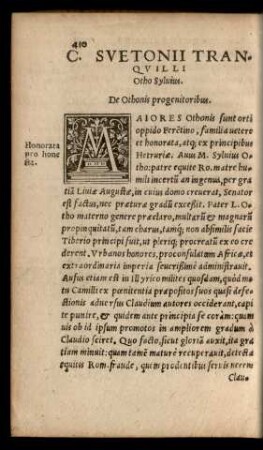 410
C. SVETONII TRAN-
QVILLI
Otho Syluius.
De Othonis progenitoribus.
Honorata
pro hone
sta.
MAIORES Othonis sunt orti
oppido Ferētino, familia uetere
et honorata, atq; ex principibus
Hetruriæ. Auus M. Syluius O-
tho: patre equite Ro. matre hu-
mili incertū an ingenui, per gra
tiā Liuiæ Augustæ, in cuius domo creuerat, Senator
est factus, nec præturæ gradū excessit. Pater L. O-
tho materno genere præclaro, multarū & magnarū
propinquitatū, tam charus, tamq; non absimilis facie
Tiberio principi fuit, ut pleriq; procreatū ex eo cre
derent. Vrbanos honores, proconsulatum Africæ, et
extraordinaria imperia seuerissime administrauit.
Ausus etiam est in Illyrico milites quosdam, quòd mo
tu Camilli ex pœnitentia præpositos suos quasi defe-
ctionis aduersus Claudium autores occiderant, capi
te punire, & quidem ante principia se coràm: quam
uis ob id ipsum promotos in ampliorem gradum à
Claudio sciret. Quo facto, sicut gloriā auxit, ita gra
tiam minuit: quam tamē maturè recuperauit, detecta
equitis Rom. fraude, quem prodentibus seruis necem
Clau-